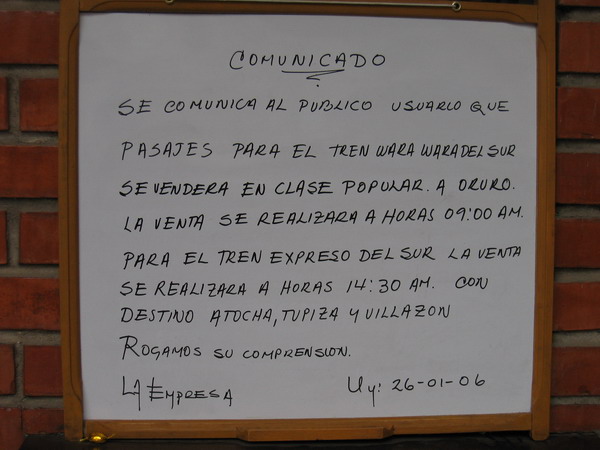 COMUNICADO
SE COMUNICA AL PUBLICO USUARIO QUE
PASAJES PARA EL TREN WARA WARA DEL SUR
SE VENDERA EN CLASE POPULAR. A ORURO.
LA VENTA SE REALIZARA A HORAS 09:00 AM.
PARA EL TREN EXPRESO DEL SUR LA VENTA
SE REALIZARA A HORAS 14:30 AM. CON
DESTINO ATOCHA, TUPIZA Y VILLAZON
ROGAMOS SU COMPRENSION.
LA EMPRESA Uy: 26-01-06